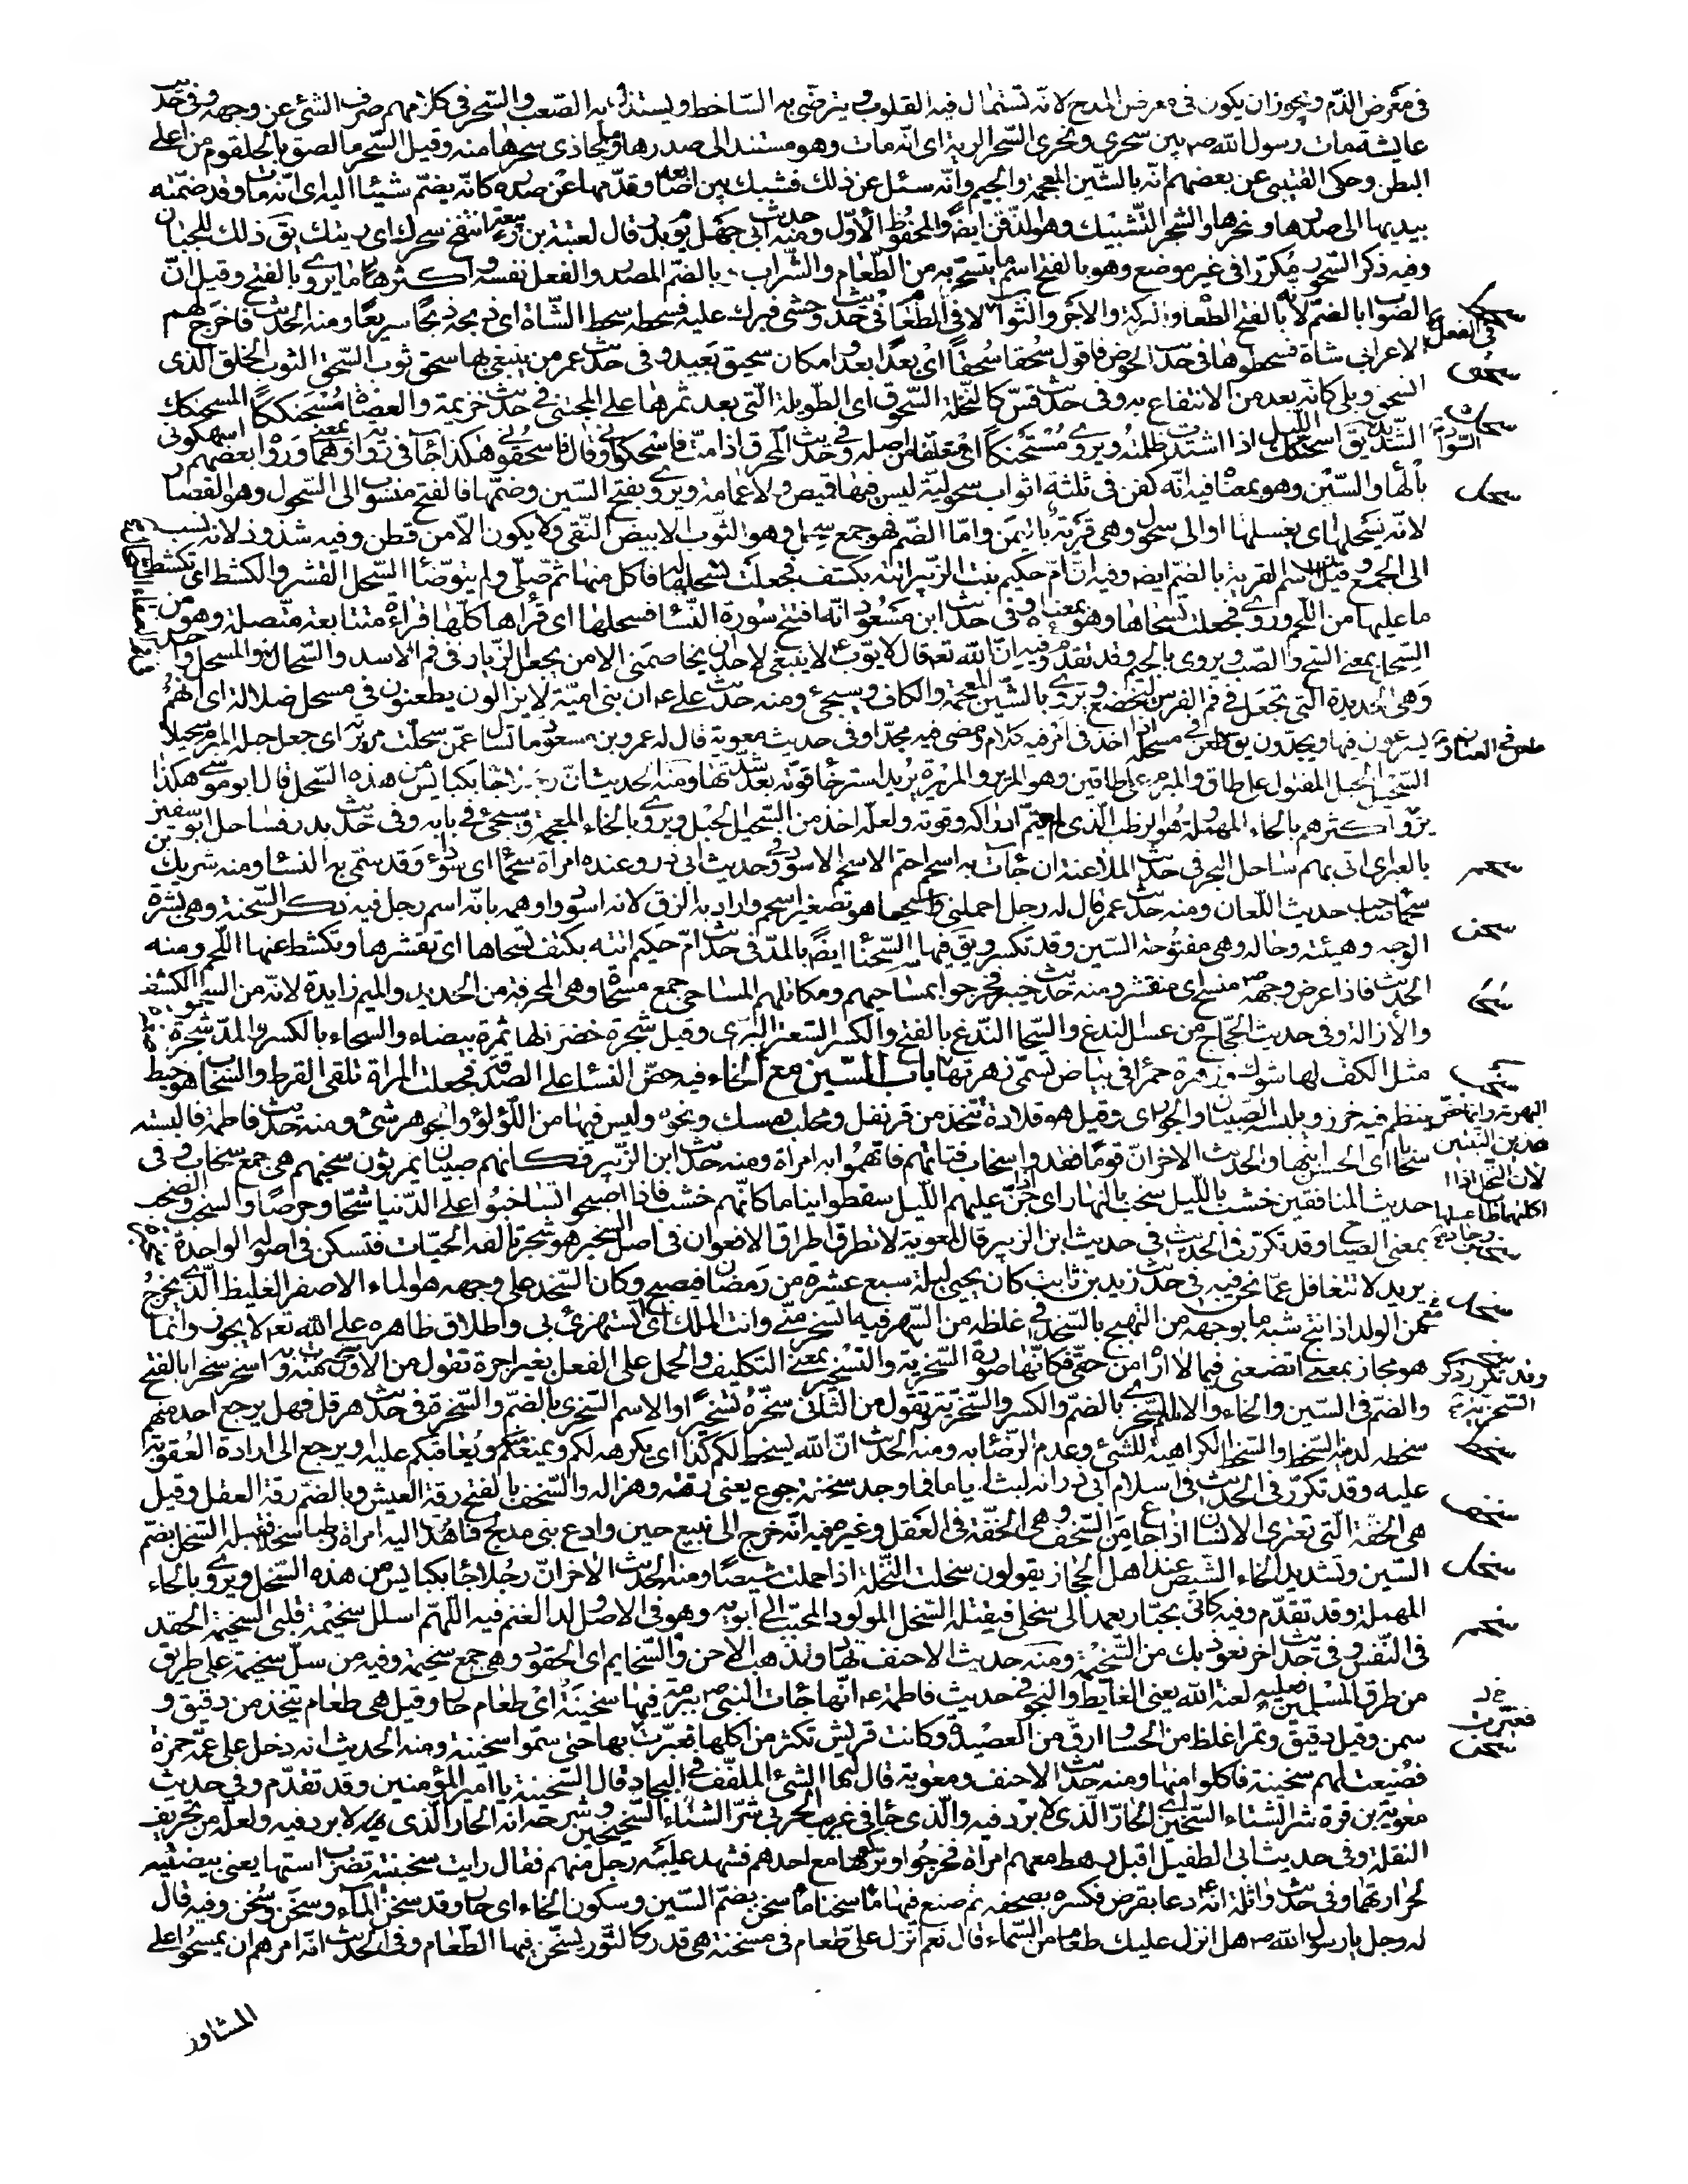 في معرض الذّم ويجوز ان يكون في معرض المدح لانّه تستمال به القلوب ويترضّى به السّاخط ويستذلّ به الصّعب والسّحر في كلامهم صرف الشئ عن وجهه وفى حديث
عايشة مات رسول الله ص بين سحري ونحري السّحر الرية اى انّه مات وهو مستند الى صدرها وما يحاذى سحرها منه وقيل السّحر ما لصق بالحلقوم من اعلى
البطن وحكى القتيبى عن بعضهم انّه بالشّين المعجمة والجيم وانّه سئل عن ذلك فشبك بين اصابعه وقدّمها عن صدره كانّه يضمّ شيئا اليه اى انّه مات وقد ضمّته
بيديها الى صدرها ونحرها والشجر التّشبيك وهو الذّقن ايضا والمحفوظ الأوّل ومنه حديث ابي جهل يوم بدر قال لعتبة بن ربيعة انتفخ سحرك اى ريتك يق ذلك للجبان
وفيه ذكر السّحور مكرّرا في غير موضع وهو بالفتح اسم ما يتسحّر به من الطّعام والشّراب وبالضمّ المصدر والفعل نفسه واكثر ما يروى بالفتح وقيل انّ
الصواب بالضمّ لانّه بالفتح الطّعام والبركة والاجر والثواب في الفعل لا في الطعام في حديث وحشى فبرك عليه فسحطه سحط الشّاة اى ذبحه ذبحا سريعا ومنه الحديث فاخرج لهم
الاعرابى شاة فسحطوها في حديث الحوض فاقول سحقا سحقا اى بعدا بعدا ومكان سحيق بعيد وفى حديث عمر من يبيعنى بها سحق ثوب السّحق الثوب الخلق الذى
انسحق وبلى كانّه بعد من الانتفاع به وفى حديث قسّ كالنّخلة السّحوق اى الطويلة التّى بعد ثمرها على المجتنى في حديث خزيمة والعضاه مسحنككا المسحنكك
الشّديد السّواد يق اسحنكك اللّيل اذا اشتدّت ظلمته ويروى مستحنكا اى منقلعا من اصله وفى حديث المحرق اذا متّ فاسحكونى او قال فاسحقونى هكذا جاء في رواية وهما بمعنى ورواه بعضهم اسهكونى
بالهاء والسّين وهو بمعناه فيه انّه كفن في ثلثة اثواب سحوليّة ليس فيها قميص ولا عمامة ويروى بفتح السّين وضمّها فالفتح منسوب الى السّحول وهو القصّار
لانّه يسحلها اى يغسلها او الى سحول وهى قرية باليمن وامّا الضّم فهو جمع سحل وهو الثّوب الابيض النّقى ولا يكون الّا من قطن وفيه شذوذ لانّه نسب
الى الجمع وقيل اسم القرية بالضمّ ايضا وفيه انّ امّ حكيم بنت الزّبير اتته بكتف فجعلت تسحلها له فاكل منها ثم صلّى ولم يتوضّأ السّحل القشر والكشط اى تكشط
ما عليها من اللّحم وروى فجعلت تسحاها وهو بمعناه وفى حديث ابن مسعود انّه افتتح سورة النّسا فسحلها اى قرأها كلّها قراءة متتابعة متّصلة وهو من
السّحل بمعنى السّح والصّب ويروى بالجيم وقد تقدّم وفيه انّ الله تعه قال لايّوب ع لا ينبغى لاحد ان يخاصمنى الا من يجعل الزّيار في فم الاسد والسّحال والمسحل واحد
وهى الحديدة التى تجعل في فم الفرس ليخضع ويروى بالشّين المعجمة والكاف وسيجئ ومنه حديث على ع ان بنى اميّة لا يزالون يطعنون في مسحل ضلالة اى انّهم
يسرعون فيها ويجدّون يق طعن في مسحله اذا اخذ في امر فيه كلام ومضى فيه مجدّا وفى حديث معوية قال له عمرو بن مسعود ما تسال عمّن سحلت مريرته اى جعل حبله المبرم سحيلا
السّحيل الحبل المفتول على طاق والمبرم على طاقين وهو المرير والمريرة يريد استرخاء قوّته بعد شدّتها ومنه الحديث انّ رجلا جاء بكبايس من هذه السّحل قال ابو موسى هكذا
يرويه اكثرهم بالحاء المهملة وهو الرطب الّذى لم يتمّ ادراكه وقوته ولعلّه اخذ من السّحيل الحبل ويروى بالخاء المعجمة وسيجئ في بابه وفى حديث بدر فساحل ابو سفين
بالعير اى اتى بهم ساحل البحر في حديث الملاعنة ان جاءت به اسحم احتم الاسحم الاسود وفى حديث ابى ذر وعنده امراة سحماء اى سوداء وقد سمّى بها النّساء ومنه شريك بن
سحماء صاحب حديث اللّعان ومنه حديث عمر قال له رجل احملنى وسحيما هو تصغير اسحم واراد به الزق لانه اسود واوهمه بانّه اسم رجل فيه ذكر السّحنة وهى بشرة
الوجه وهيئته وحاله وهى مفتوحة السّين وقد تكسر ويق فيها السّحناء ايضا بالمدّ في حديث امّ حكيم اتته بكتف تسحاها اى تقشرها وتكشط عنها اللّحم ومنه
الحديث فاذا عرض وجهه منسح اى منقشر ومنه حديث خيبر فخرجوا بمساحيهم ومكاتلهم المساحى جمع مسحاة وهى المجرفة من الحديد والميم زايدة لانّه من السحو الكشف
والأزالة وفى حديث الحجّاج من عسل الندغ والسّحا النّدغ بالفتح والكسر السّعتر البرّى وقيل شجرة خضراء لها ثمرة بيضاء والسحاء بالكسر والمدّ شجرة
مثل الكفّ لها شوك وزهرة حمراء في بياض تسمّى زهرتها باب السّين مع الخاء فيه حضّ النّساء على الصدقة فجعلت المراة تلقى القرط والسّخاب هو خيط
ينظم فيه خرز ويلبسه الصّبيان والجوارى وقيل هو قلادة تتّخذ من قرنفل ومحلب ومسك ونحوه وليس فيها من اللّؤلؤ والجوهر شئ ومنه حديث فاطمة فالبسته
سخابا اى الحسن ابنها والحديث الاخر انّ قوما فقدوا سخاب فتاتهم فاتّهموا به امراة ومنه حديث ابن الزّبير وكانّهم صبيان يمرثون سخبهم هى جمع سخاب وفى
حديث المنافقين خشب باللّيل سخب بالنّهار اى اذا جنّ عليهم اللّيل سقطوا نياما كانّهم خشب فاذا اصبحوا تساخبوا على الدّنيا شحّا وحرصا والسخب والصخب
بمعنى الصّياح وقد تكرّر في الحديث في حديث ابن الزبير قال لمعوية لا تطرق اطراق الافعوان في اصل السّخبر هو شجر تالفه الحيّات فتسكن في اصوله الواحدة
يريد لا تتغافل عمّا نحن فيه في حديث زيد بن ثابت كان يحيى ليلة سبع عشرة من رمضان فيصبح وكانّ السّخد على وجهه هو الماء الاصفر الغليظ الّذى يخرج
مع الولد اذا نتج شبه ما بوجهه من التهيج بالسّخد في غلظه من السّهر فيه اتسخر منّى وانت الملك اى اتستهزئ بى واطلاق ظاهره على الله تعه لا يجوز وانّما
هو مجاز بمعنى اتضعنى فيما لا اراه من حقّى فكانّها صورة السّخرية والتسخير بمعنى التكليف والحمل على الفعل بغير اجرة تقول من الاوّل سخرت منه وبه اسخر سخرا بالفتح
والضمّ في السّين والخاء والاسم السّخرى بالضمّ والكسر والسّخريّة وتقول من الثّانى سخّره تسخيرا والاسم السّخرى بالضمّ والسّخرة في حديث هرقل فهل يرجع احد منهم
سخطه لدينه السّخط والسّخط الكراهية للشئ وعدم الرّضا به ومنه الحديث انّ الله يسخط لكم كذا اى يكرهه لكم ويمنعكم ويعاقبكم عليه او يرجع الى ارادة العقوبة
عليه وقد تكرّر في الحديث في اسلام ابى ذر انه لبث اياما فما وجد سخفة جوع يعنى رقّته وهزاله والسّخف بالفتح رقة العيش وبالضمّ رقة العقل وقيل
هى الخفّة التّى تعترى الانسان اذا جاع من السّخف وهى الخفّة في العقل وغيره فيه انّه خرج الى ينبع حين وادع بنى مدلج فاهدت اليه امراة رطبا سخّلا فقبله السّخّل بضمّ
السّين وتشديد الخاء الشّيص عند اهل الحجاز يقولون سخّلت النّخلة اذا حملت شيصا ومنه الحديث الاخر انّ رجلا جاء بكبايس من هذه السّخّل ويروى بالحاء
المهملة وقد تقدّم وفيه كانّى بجبّار يعمد الى سخلى فيقتله السّخل المولود المحبّب الى ابويه وهو في الاصل ولد الغنم فيه اللّهمّ اسلل سخيمة قلبى السّخيمة الحقد
في النّفس وفى حديث اخر نعوذ بك من السّخيمة ومنه حديث الاحنف تهادوا تذهب الاحن والسّخايم اى الحقود وهى جمع سخيمة وفيه من سلّ سخيمته على طريق
من طرق المسلمين فعليه لعنة الله يعنى الغايط والنّجو في حديث فاطمة ع انّها جاءت النبى ص ببرمة فيها سخينة اى طعام حارّ وقيل هى طعام يتّخذ من دقيق و
سمن وقيل دقيق وتمر اغلظ من الحساء وارقّ من العصيدة وكانت قريش تكثر من اكلها فعيّرت بها حتى سمّوا سخينة ومنه الحديث انه دخل على عمّه حمزة
فصنعت لهم سخينة فاكلوا منها ومنه حديث الاحنف ومعوية قال له ما الشئ الملفّف في البجاد قال السّخينة يا امير المؤمنين وقد تقدّم وفى حديث
معوية بن قرة شرّ الشّتاء السّخين اى الحارّ الّذى لا برد فيه والّذى جاء في غريب الحربى شرّ الشتاء السّخيخين وشرحه انه الحار الّذى لا برد فيه ولعلّه من تحريف
النقلة وفى حديث ابى الطفيل اقبل رهط معهم امراة فخرجوا وتركوها مع احدهم فشهد عليه رجل منهم فقال رايت سخينتيه تضرب استها يعنى بيضتيه
لحرارتهما وفى حديث واثلة انّه ع دعا بقرص فكسره بصحفه ثم صنع فيها ماء سخنا ماء سخن بضمّ السّين وسكون الخاء اى حارّ وقد سخن الماء وسخن وسخن وفيه قال
له رجل يا رسول الله ص هل انزل عليك طعام من السّماء قال نعم انزل علىّ طعام في مسخنة هى قدر كالتّور يسخّن فيها الطّعام وفى الحديث انّه امرهم ان يمسحوا على
المشاوذ